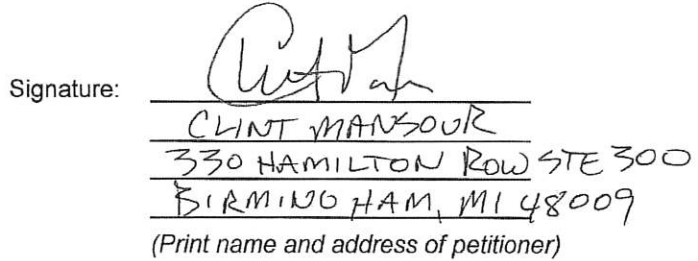 Signature:
CLINT MANSOUR
330 HAMILTON ROW STE 300
BIRMINGHAM, MI 48009
(Print name and address of petitioner)